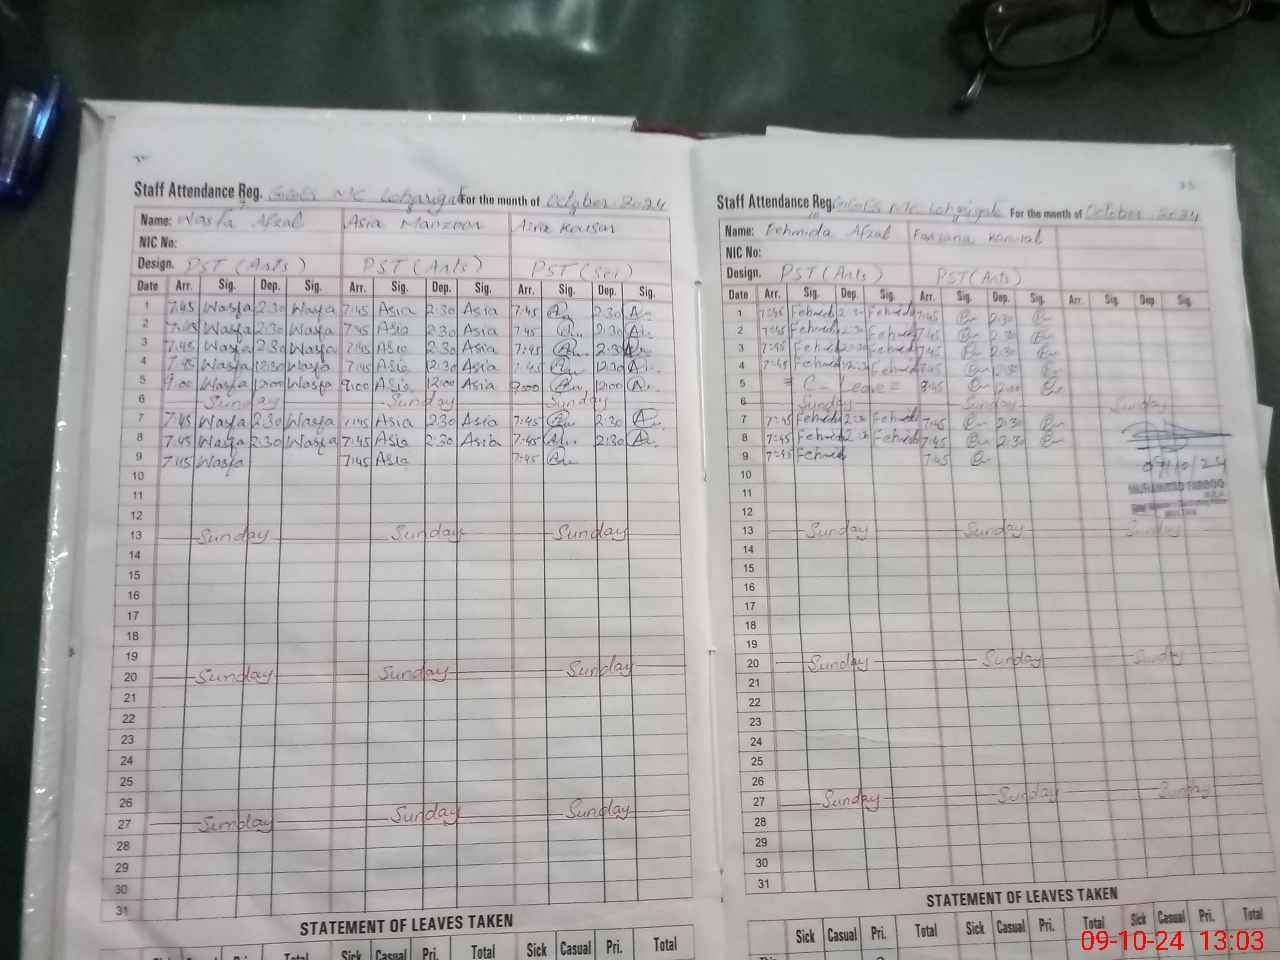 Staff Attendance Reg. For the month of October 2024
Name: Wasfa Afzal Asia Manzoor Asia Kausar
NIC No:
Design. PST (Arts) PST (Arts) PST (Sci)
Date Arr. Sig. Dep. Sig. Arr. Sig. Dep. Sig. Arr. Sig. Dep. Sig.
1 7:45 Wasfa 2:30 Wasfa 7:45 Asia 2:30 Asia 7:45 2:30
2 7:45 Wasfa 2:30 Wasfa 7:45 Asia 2:30 Asia 7:45 2:30
3 7:45 Wasfa 2:30 Wasfa 7:45 Asia 2:30 Asia 7:45 2:30
4 7:45 Wasfa 12:30 Wasfa 7:45 Asia 12:30 Asia 7:45 12:30
5 9:00 Wasfa 12:00 Wasfa 9:00 Asia 12:00 Asia 9:00 12:00
6 Sunday Sunday Sunday
7 7:45 Wasfa 2:30 Wasfa 7:45 Asia 2:30 Asia 7:45 2:30
8 7:45 Wasfa 2:30 Wasfa 7:45 Asia 2:30 Asia 7:45 2:30
9 7:45 Wasfa 7:45 Asia 7:45
10
11
12
13 Sunday Sunday Sunday
14
15
16
17
18
19
20 Sunday Sunday Sunday
21
22
23
24
25
26
27 Sunday Sunday Sunday
28
29
30
31
STATEMENT OF LEAVES TAKEN
Total Sick Casual Pri. Total Sick Casual Pri. Total
Staff Attendance Reg. For the month of October 2024
Name: Fehmida Afzal Farzana
NIC No:
Design. PST (Arts) PST (Arts)
Date Arr. Sig. Dep. Sig. Arr. Sig. Dep. Sig. Arr. Sig. Dep. Sig.
1 7:45 Fehmed 2:30 Fehmed 7:45 2:30
2 7:45 Fehmed 2:30 Fehmed 7:45 2:30
3 7:45 Fehmed 2:30 Fehmed 7:45 2:30
4 7:45 Fehmed 12:30 Fehmed 7:45
5 = C- Leave =
6 Sunday Sunday Sunday
7 7:45 Fehmed 2:30 Fehmed 7:45 2:30
8 7:45 Fehmed 2:30 Fehmed 7:45 2:30
9 7:45 Fehmed 7:45
09/10/24
10
MUHAMMAD FAROOQ
11
12
13 Sunday Sunday Sunday
14
15
16
17
18
19
20 Sunday Sunday Sunday
21
22
23
24
25
26
27 Sunday Sunday Sunday
28
29
30
31
STATEMENT OF LEAVES TAKEN
Sick Casual Pri. Total Sick Casual Pri. Total Sick Casual Pri. Total
09-10-24 13:03